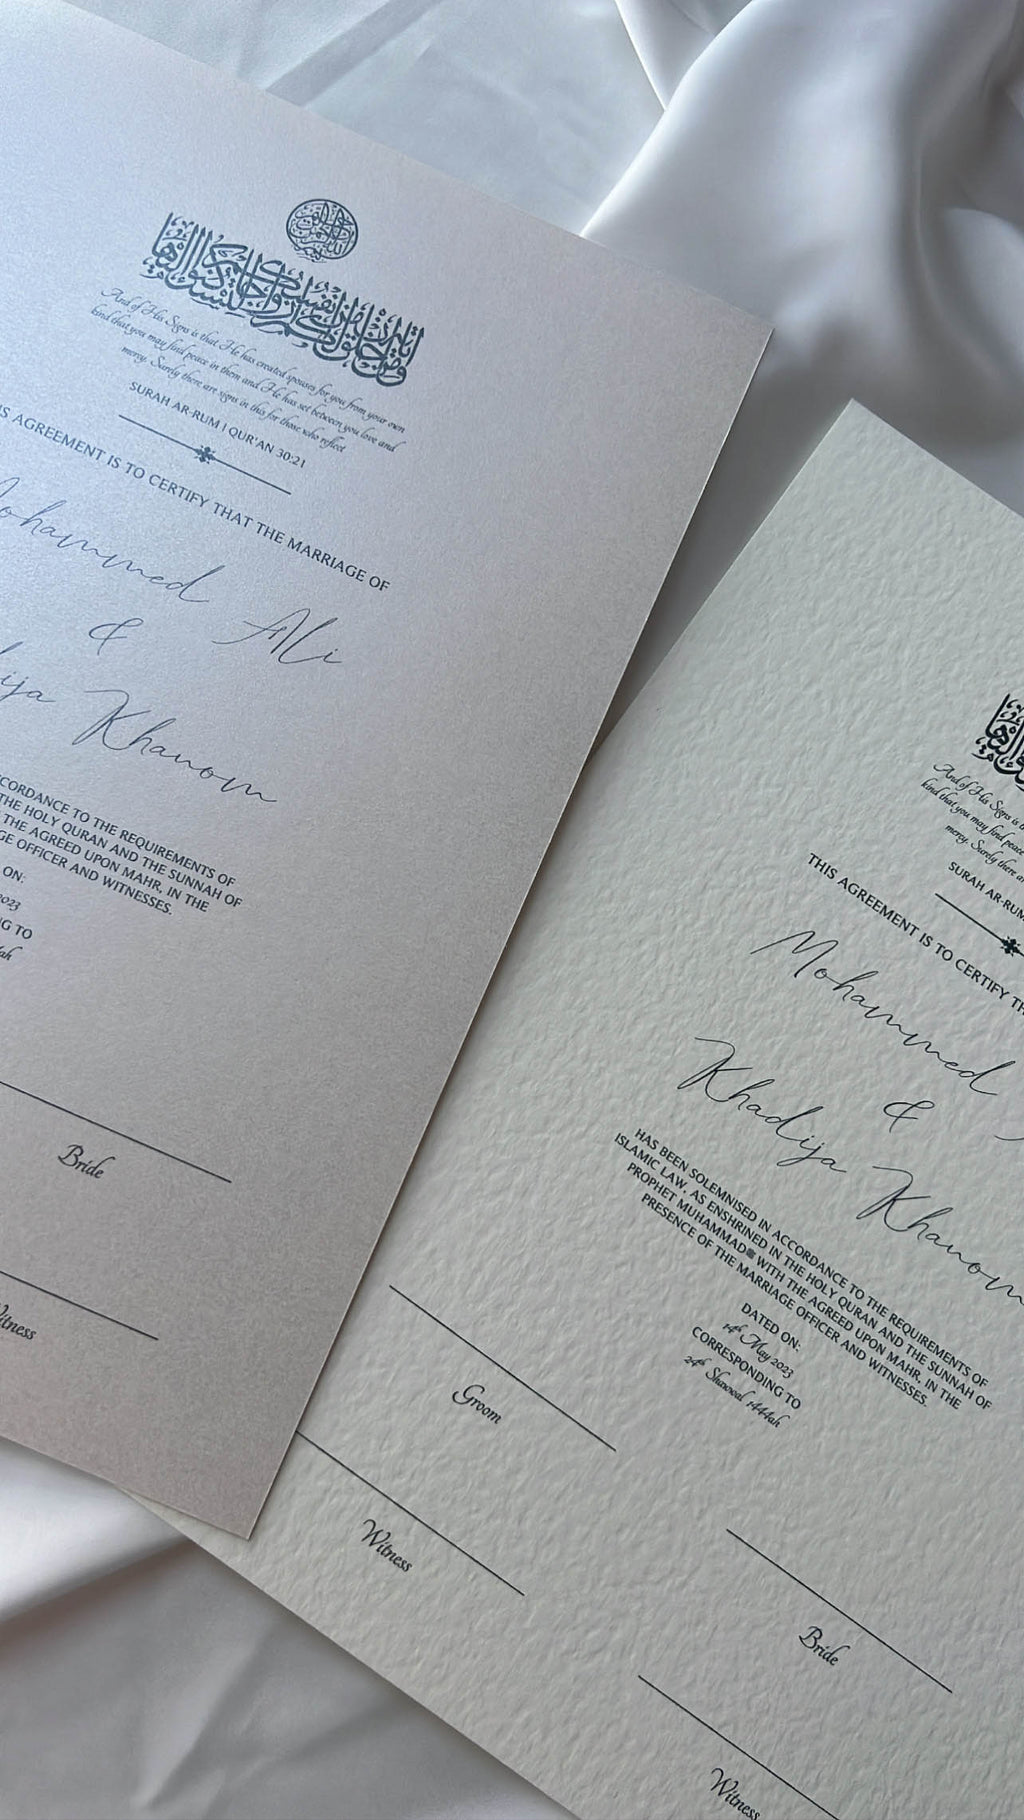 And of His Signs is that He has created spouses for you from your own
kind that you may find peace in them and He has set between you love and
mercy. Surely there are signs in this for those who reflect
SURAH AR-RUM | QUR'AN 30:21
IS AGREEMENT IS TO CERTIFY THAT THE MARRIAGE OF
ohammed Ali
&
ija Khanom
CCORDANCE TO THE REQUIREMENTS OF
THE HOLY QURAN AND THE SUNNAH OF
THE AGREED UPON MAHR, IN THE
GE OFFICER AND WITNESSES.
ON:
2023
NG TO
ah
Bride
Witness
And of His Signs is
kind that you may find peace
mercy. Surely there a
SURAH AR-RUM
THIS AGREEMENT IS TO CERTIFY TH
Mohammed
&
Khadija Khanom
HAS BEEN SOLEMNISED IN ACCORDANCE TO THE REQUIREMENTS OF
ISLAMIC LAW, AS ENSHRINED IN THE HOLY QURAN AND THE SUNNAH OF
PROPHET MUHAMMAD WITH THE AGREED UPON MAHR, IN THE
PRESENCE OF THE MARRIAGE OFFICER AND WITNESSES.
DATED ON:
14th May 2023
CORRESPONDING TO
24th Shawwal 1444ah
Groom
Witness
Bride
Witness